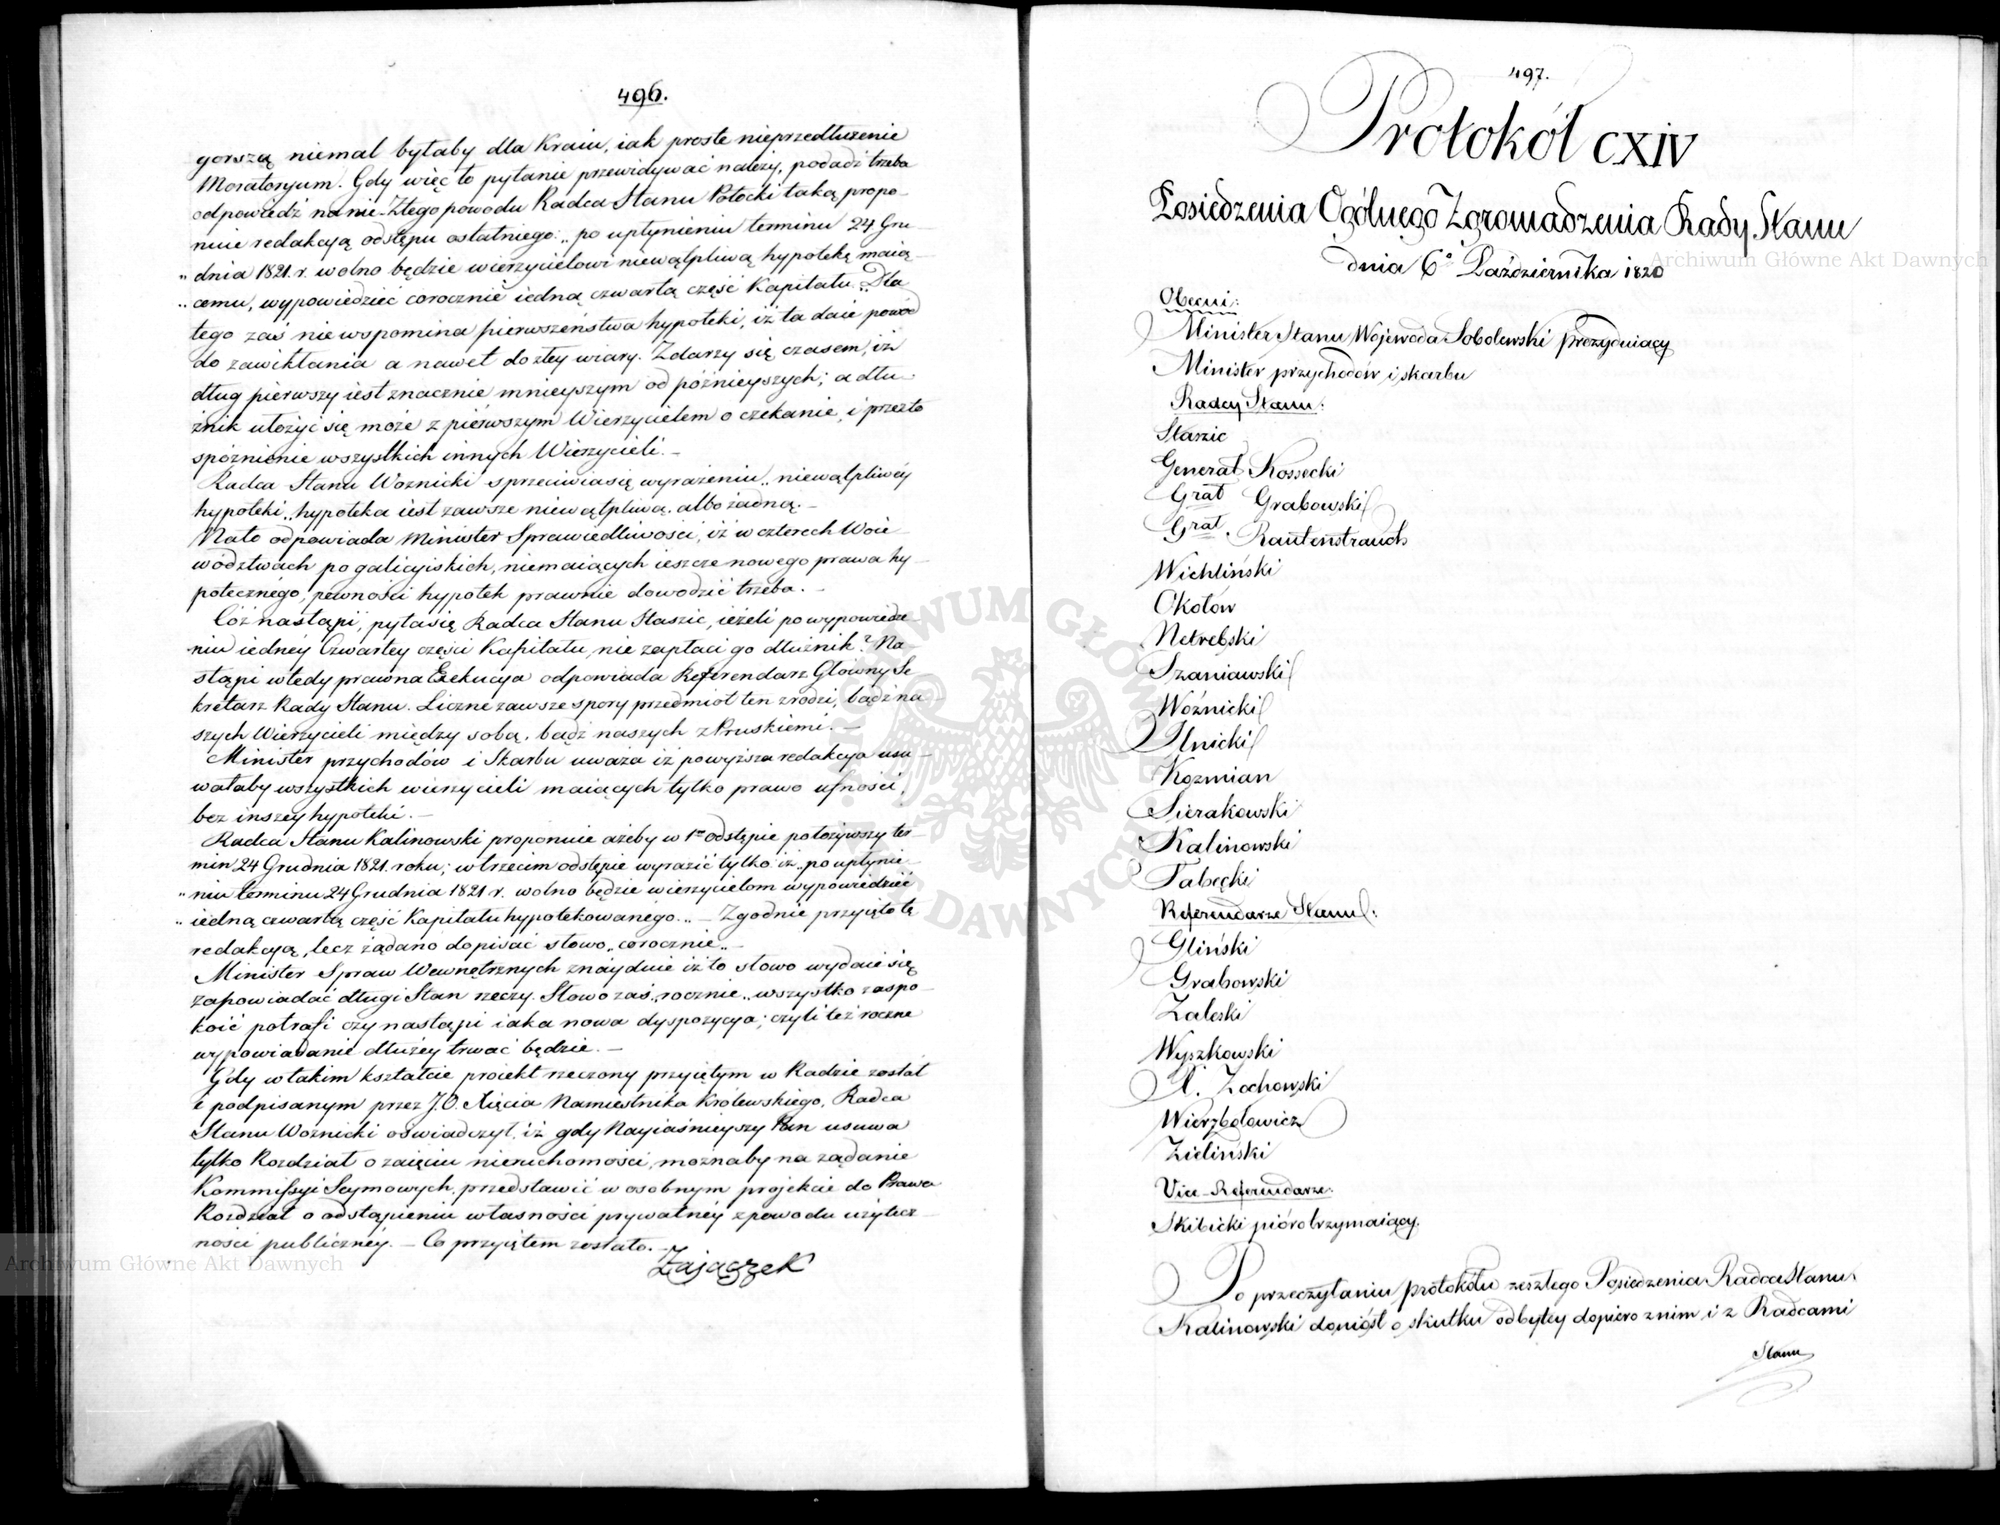 496.
gorszą niemal byłaby dla Kraiu, iak proste nieprzedłużenie
Moratoryum. Gdy więc to pytanie przewidywać należy, podadź trzeba
odpowiedź na nie. Z tego powodu Radca Stanu Potocki taką propo-
nuie redakcyą odstępu ostatniego: „po upłynieniu terminu 24 Gru-
„dnia 1821. r. wolno będzie wierzycielowi niewątpliwą hypotekę maią-
„cemu, wypowiedzieć corocznie iedną czwartą część Kapitału." Dla
tego zaś nie wspomina pierwszeństwa hypoteki, iż ta daie powód
do zawikłania a nawet do złey wiary. Zdarzy się czasem, iż
dług pierwszy iest znacznie mnieyszym od późnieyszych; a dłu-
żnik ułożyć się może z piérwszym Wierzycielem o czekanie, i przezto
spóźnienie wszystkich innych Wierzycieli. –
Radca Stanu Woźnicki sprzeciwia się wyrażeniu „niewątpliwéy
hypoteki„ hypoteka iest zawsze niewątpliwą, albo żadną. –
Na to odpowiada Minister Sprawiedliwości, iż w czterech Woie-
wództwach po galicyiskich, niemaiących ieszcze nowego prawa hy-
potecznégo, pewności hypotek prawnie dowodzić trzeba. –
Cóż nastąpi, pyta się Radca Stanu Staszic, ieżeli po wypowiedze-
niu iednéy Czwartey części Kapitału, nie zapłaci go dłużnik? Na-
stąpi wtedy prawna Exekucya odpowiada Referendarz Główny Se-
kretarz Rady Stanu. Liczne zawsze spory przedmiot ten zrodzi, bądź na-
szych Wierzycieli między sobą, bądź naszych z Pruskiemi. –
Minister przychodów i Skarbu uważa iż powyższa redakcya usu-
wałaby wszystkich wierzycieli maiących tylko prawo ufności,
bez inszey hypoteki. –
Radca Stanu Kalinowski proponuie ażeby w 1ym odstępie położywszy ter-
min 24 Grudnia 1821. roku; w trzecim odstępie wyrazić tylko iż „po upłynie-
„niu terminu 24 Grudnia 1821 r. wolno będzie wierzycielom wypowiedzieć
„iedną czwartą część Kapitału hypotekowanego„. – Zgodnie przyięto tę
redakcyą, lecz żądano dopisać słowo „corocznie„. –
Minister Spraw Wewnętrznych znayduie iż to słowo wydaie się
zapowiadać długi Stan rzeczy. Słowo zaś „rocznie„ wszystko zaspo-
koić potrafi czy nastąpi iaka nowa dyspozycya; czyli też roczne
wypowiadanie dłużéy trwać będzie. –
Gdy w takim kształcie proiekt rzeczony przyiętym w Radzie został
i podpisanym przez J.O. Xięcia Namiestnika Królewskiego, Radca
Stanu Woźnicki oświadczył, iż gdy Nayiaśnieyszy Pan usuwa
tylko Rozdział o zaięciu nieruchomości, możnaby na żądanie
Kommissyi Seymowych, przedstawić w osobnym projekcie do Prawa
Rozdział o odstąpieniu własności prywatnéy z powodu użytecz-
ności publicznéy. – Co przyiętem zostało. –
Zajączek
497.
Protokół CXIV
Posiedzenia Ogólnego Zgromadzenia Rady Stanu
dnia 6o Października 1820
Obecni:
Minister Stanu Wojewoda Sobolewski prezyduiący
Minister przychodów i skarbu
Radcy Stanu:
Staszic
Generał Kossecki
Grał Grabowski
Grał. Rautenstrauch
Wichliński
Okołów
Netrebski
Szaniawski
Woźnicki
Ilnicki
Kozmian
Sierakowski
Kalinowski
Tabęcki
Referendarze Stanu:
Gliński
Grabowski
Zaleski
Wyszkowski
X. Zochowski
Wierzbołowicz
Zieliński
Vice-Referendarze:
Skibicki pióro trzymaiący.
Po przeczytaniu protokółu zeszłego Posiedzenia Radca Stanu
Kalinowski doniósł o skutku odbytey dopiero z nim i z Radcami
Stanu
Archiwum Główne Akt Dawnych
Archiwum Główne Akt Dawnych
ARCHIWUM GŁÓWNE AKT DAWNYCH